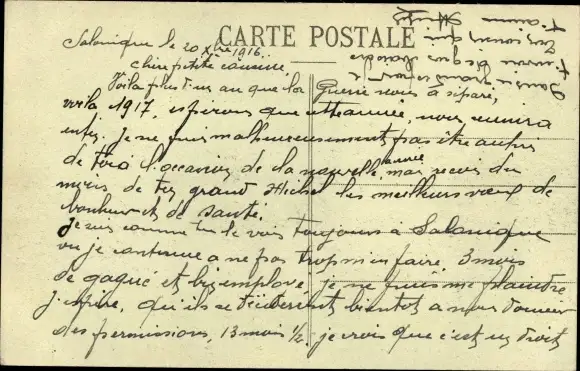 CARTE POSTALE
Salonique le 20 Xbre 1916
chère petite cousine,
Voilà plus d'un an que la Guerre nous a séparé,
voila 1917, espérons que cette année, nous réunira
enfin. Je ne puis malheureusement pas être auprès
de toi à l'occasion de la nouvelle année, mais reçois du
de ton grand Michel les meilleurs vœux de
bonheur et de santé.
Je suis comme tu le vois toujours à Salonique
ou je continue a ne pas trop m'en faire, 3 mois
de gagné et bien employé, je ne puis me plaindre
j'espère, qu'ils se décideront bientot a nous donner
des permissions, 13 mois ½. je crois que c'est un droit